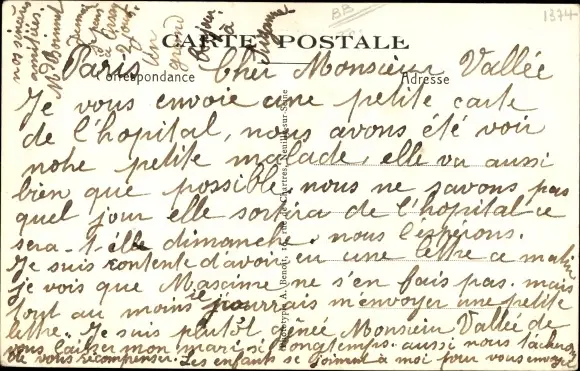 1374
BB
CARTE POSTALE
Correspondance
Adresse
Paris Cher Monsieur Vallée
Je vous envoie une petite carte
de l'hopital, nous avons été voir
notre petite malade, elle va aussi
bien que possible, nous ne savons pas
quel jour elle sortira de l'hopital ce
sera-t-elle dimanche. nous l'espérons.
Je suis contente d'avoir eu une lettre ce matin
je vois que ne s'en fait pas. mais
tout au moins je pourrais m'envoyer une petite
lettre. Je suis plutôt gênée Monsieur Vallée de
vous laisser mon mari si longtemps. aussi nous tacherons
de vous récompenser. Les enfants se joignent à moi pour vous envoyer
nos sincères
amitiés.
Un
grand
à
Suzanne
Phototypie A. Benoit, rue de Chartres, Neuilly-sur-Seine